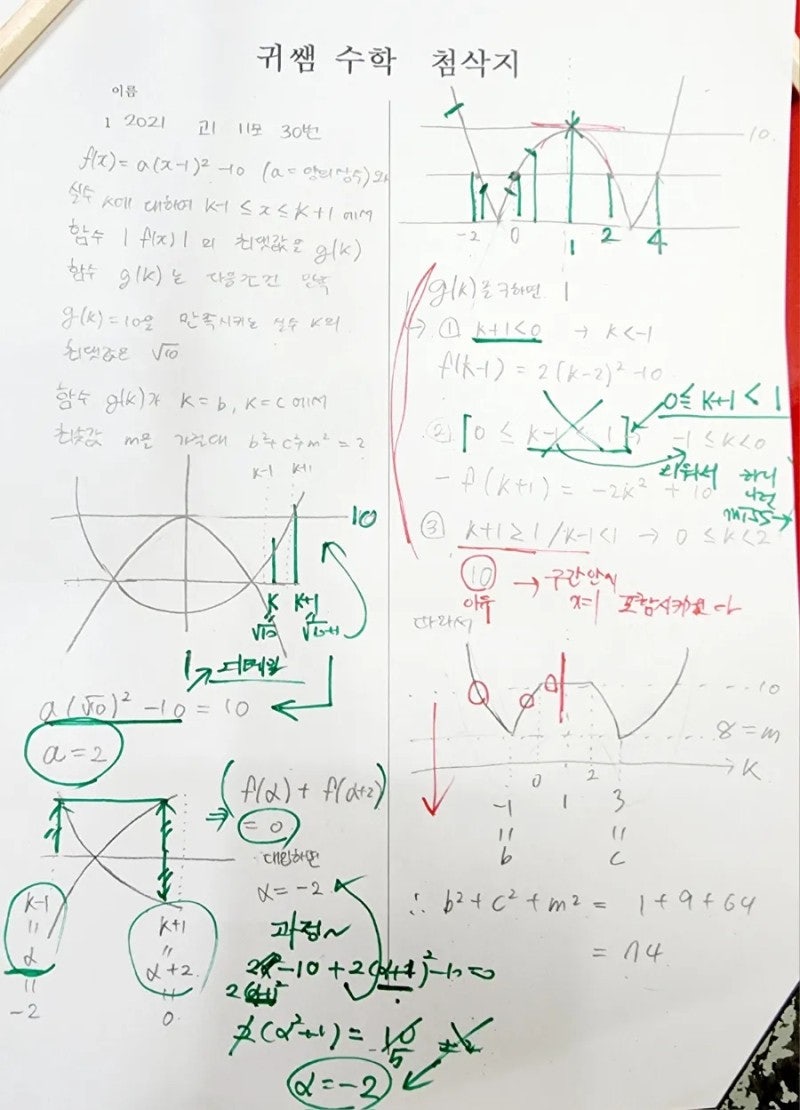 귀쌤 수학 첨삭지
이름
1 2021 고1 11모 30번
f(x) = a(x-1)² -10 (a = 양의상수)와
실수 k에 대하여 k-1 ≤ x ≤ k+1 에서
함수 |f(x)| 의 최댓값을 g(k)
함수 g(k)는 다음조건 만족
g(k) = 10을 만족시키는 실수 k의
최댓값은 √10
함수 g(k)가 k = b, k = c에서
최솟값 m을 가질때 b²+c²+m² = ?
k-1 k+1
10
k k+1
√10 √10+1
대입
a(√10)² -10 = 10
a = 2
f(α) + f(α+2)
= 0
대입하면
α = -2
k-1
=
α
=
-2
k+1
=
α+2
=
0
과정~
-10 + 2(α+1)² -10 = 0
2(α²+1) = 10
5
α = -2
10
-2 0 1 2 4
g(k)를 구하면
① k+1<0 → k<-1
f(k-1) = 2(k-2)² -10
0 ≤ k+1 < 1
② 0 ≤ k-1 < 1 → -1 ≤ k<0
지워서 하나
-f(k+1) = -2k² + 10
miss→
③ k+1 ≥ 1 / k-1<1 → 0 ≤ k<2
10 → 구간안에
이유 x=1 포함시키므로
따라서
10
8 = m
k
0 2
-1 1 3
= =
b c
∴ b² + c² + m² = 1 + 9 + 64
= 74